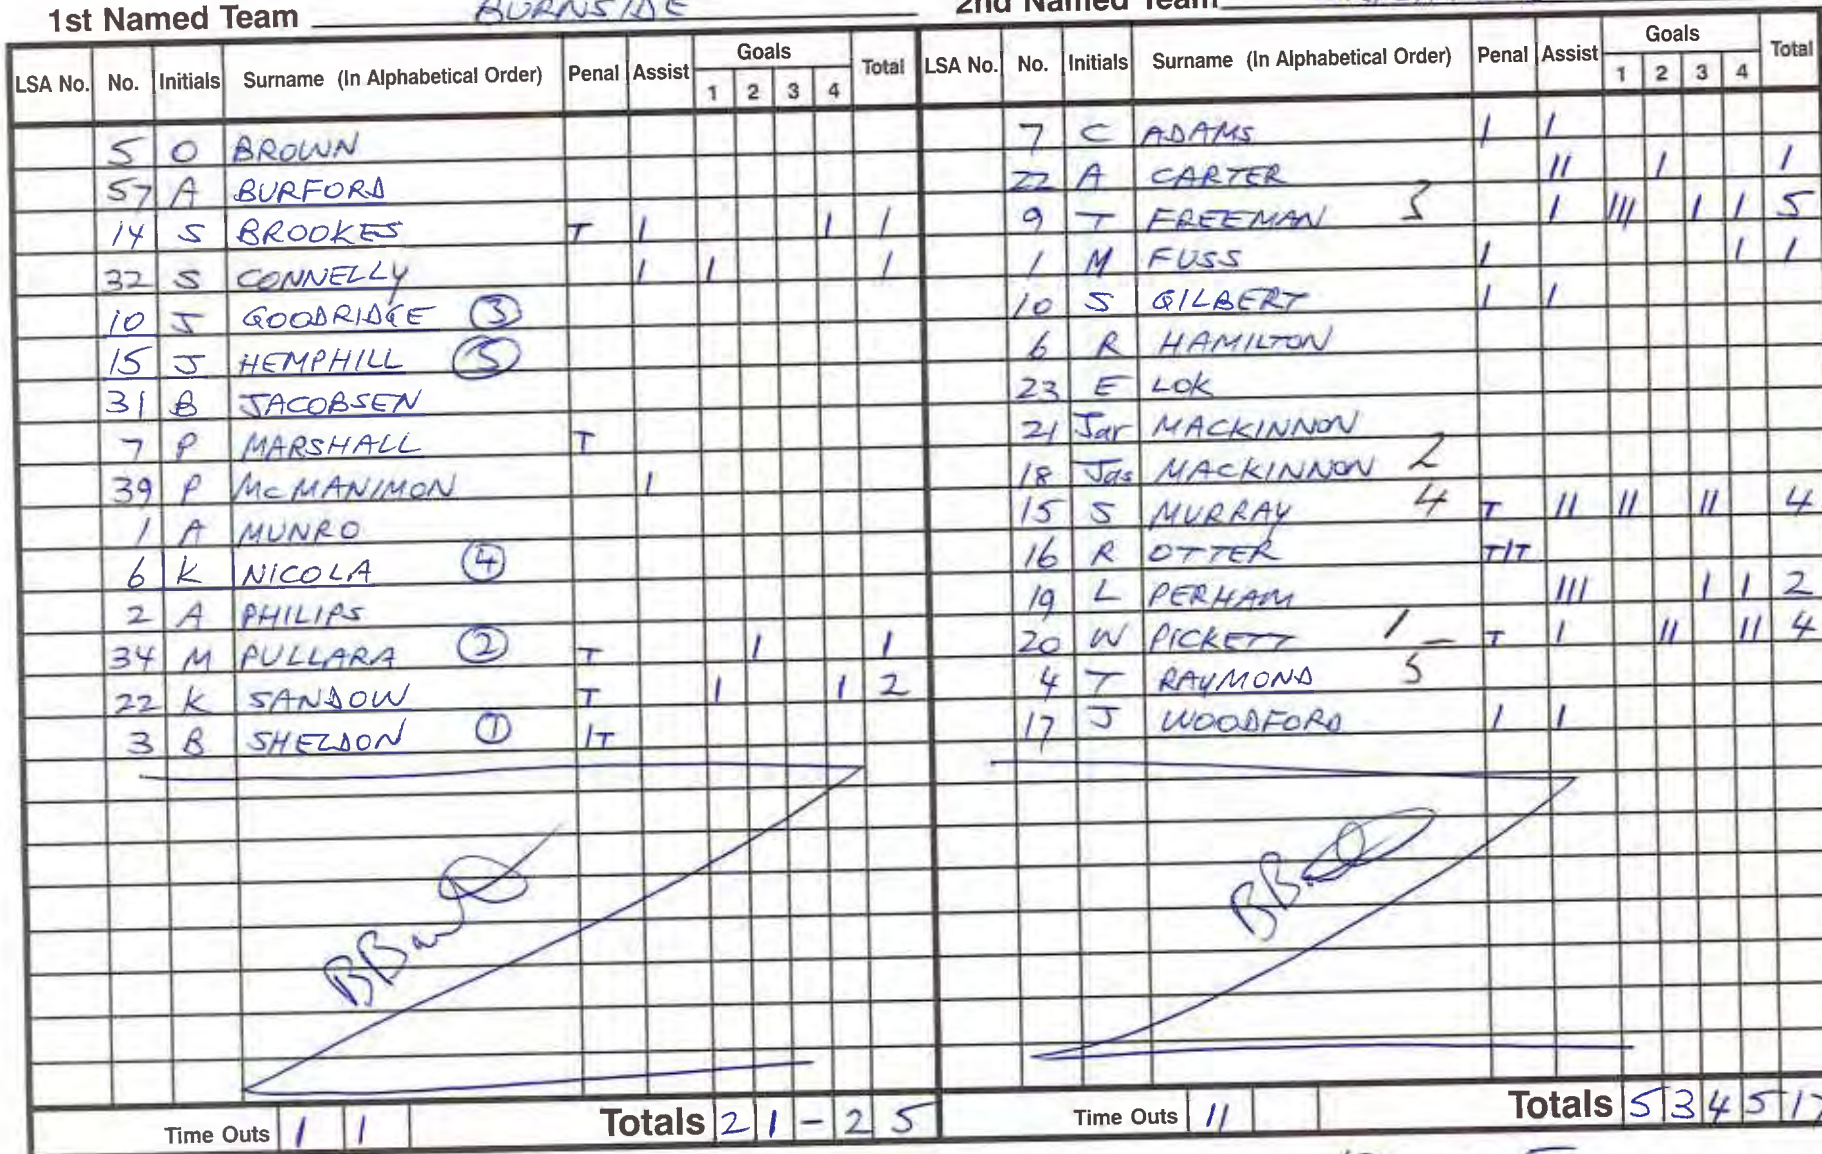 1st Named Team BURNSIDE 2nd Named Team
LSA No. No. Initials Surname (In Alphabetical Order) Penal Assist Goals 1 2 3 4 Total
5 O BROWN
57 A BURFORD
14 S BROOKES T I I I
32 S CONNELLY I I I
10 J GOODRIDGE 3
15 J HEMPHILL 5
31 B JACOBSEN
7 P MARSHALL T
39 P McMANIMON I
1 A MUNRO
6 K NICOLA 4
2 A PHILIPS
34 M PULLARA 2 T I I
22 K SANDOW T I I 2
3 B SHELDON 1 IT
Time Outs I I Totals 2 1 - 2 5
LSA No. No. Initials Surname (In Alphabetical Order) Penal Assist Goals 1 2 3 4 Total
7 C ADAMS I I
22 A CARTER II I I
9 T FREEMAN 3 I III I I 5
1 M FUSS I I I
10 S GILBERT I I
6 R HAMILTON
23 E LOK
21 Jar MACKINNON
18 Jas MACKINNON 2
15 S MURRAY 4 T II II II 4
16 R OTTER TIT
19 L PERHAM III I I 2
20 W PICKETT 1 T I II II 4
4 T RAYMOND 5
17 J WOODFORD I I
Time Outs II Totals 5 3 4 5 17